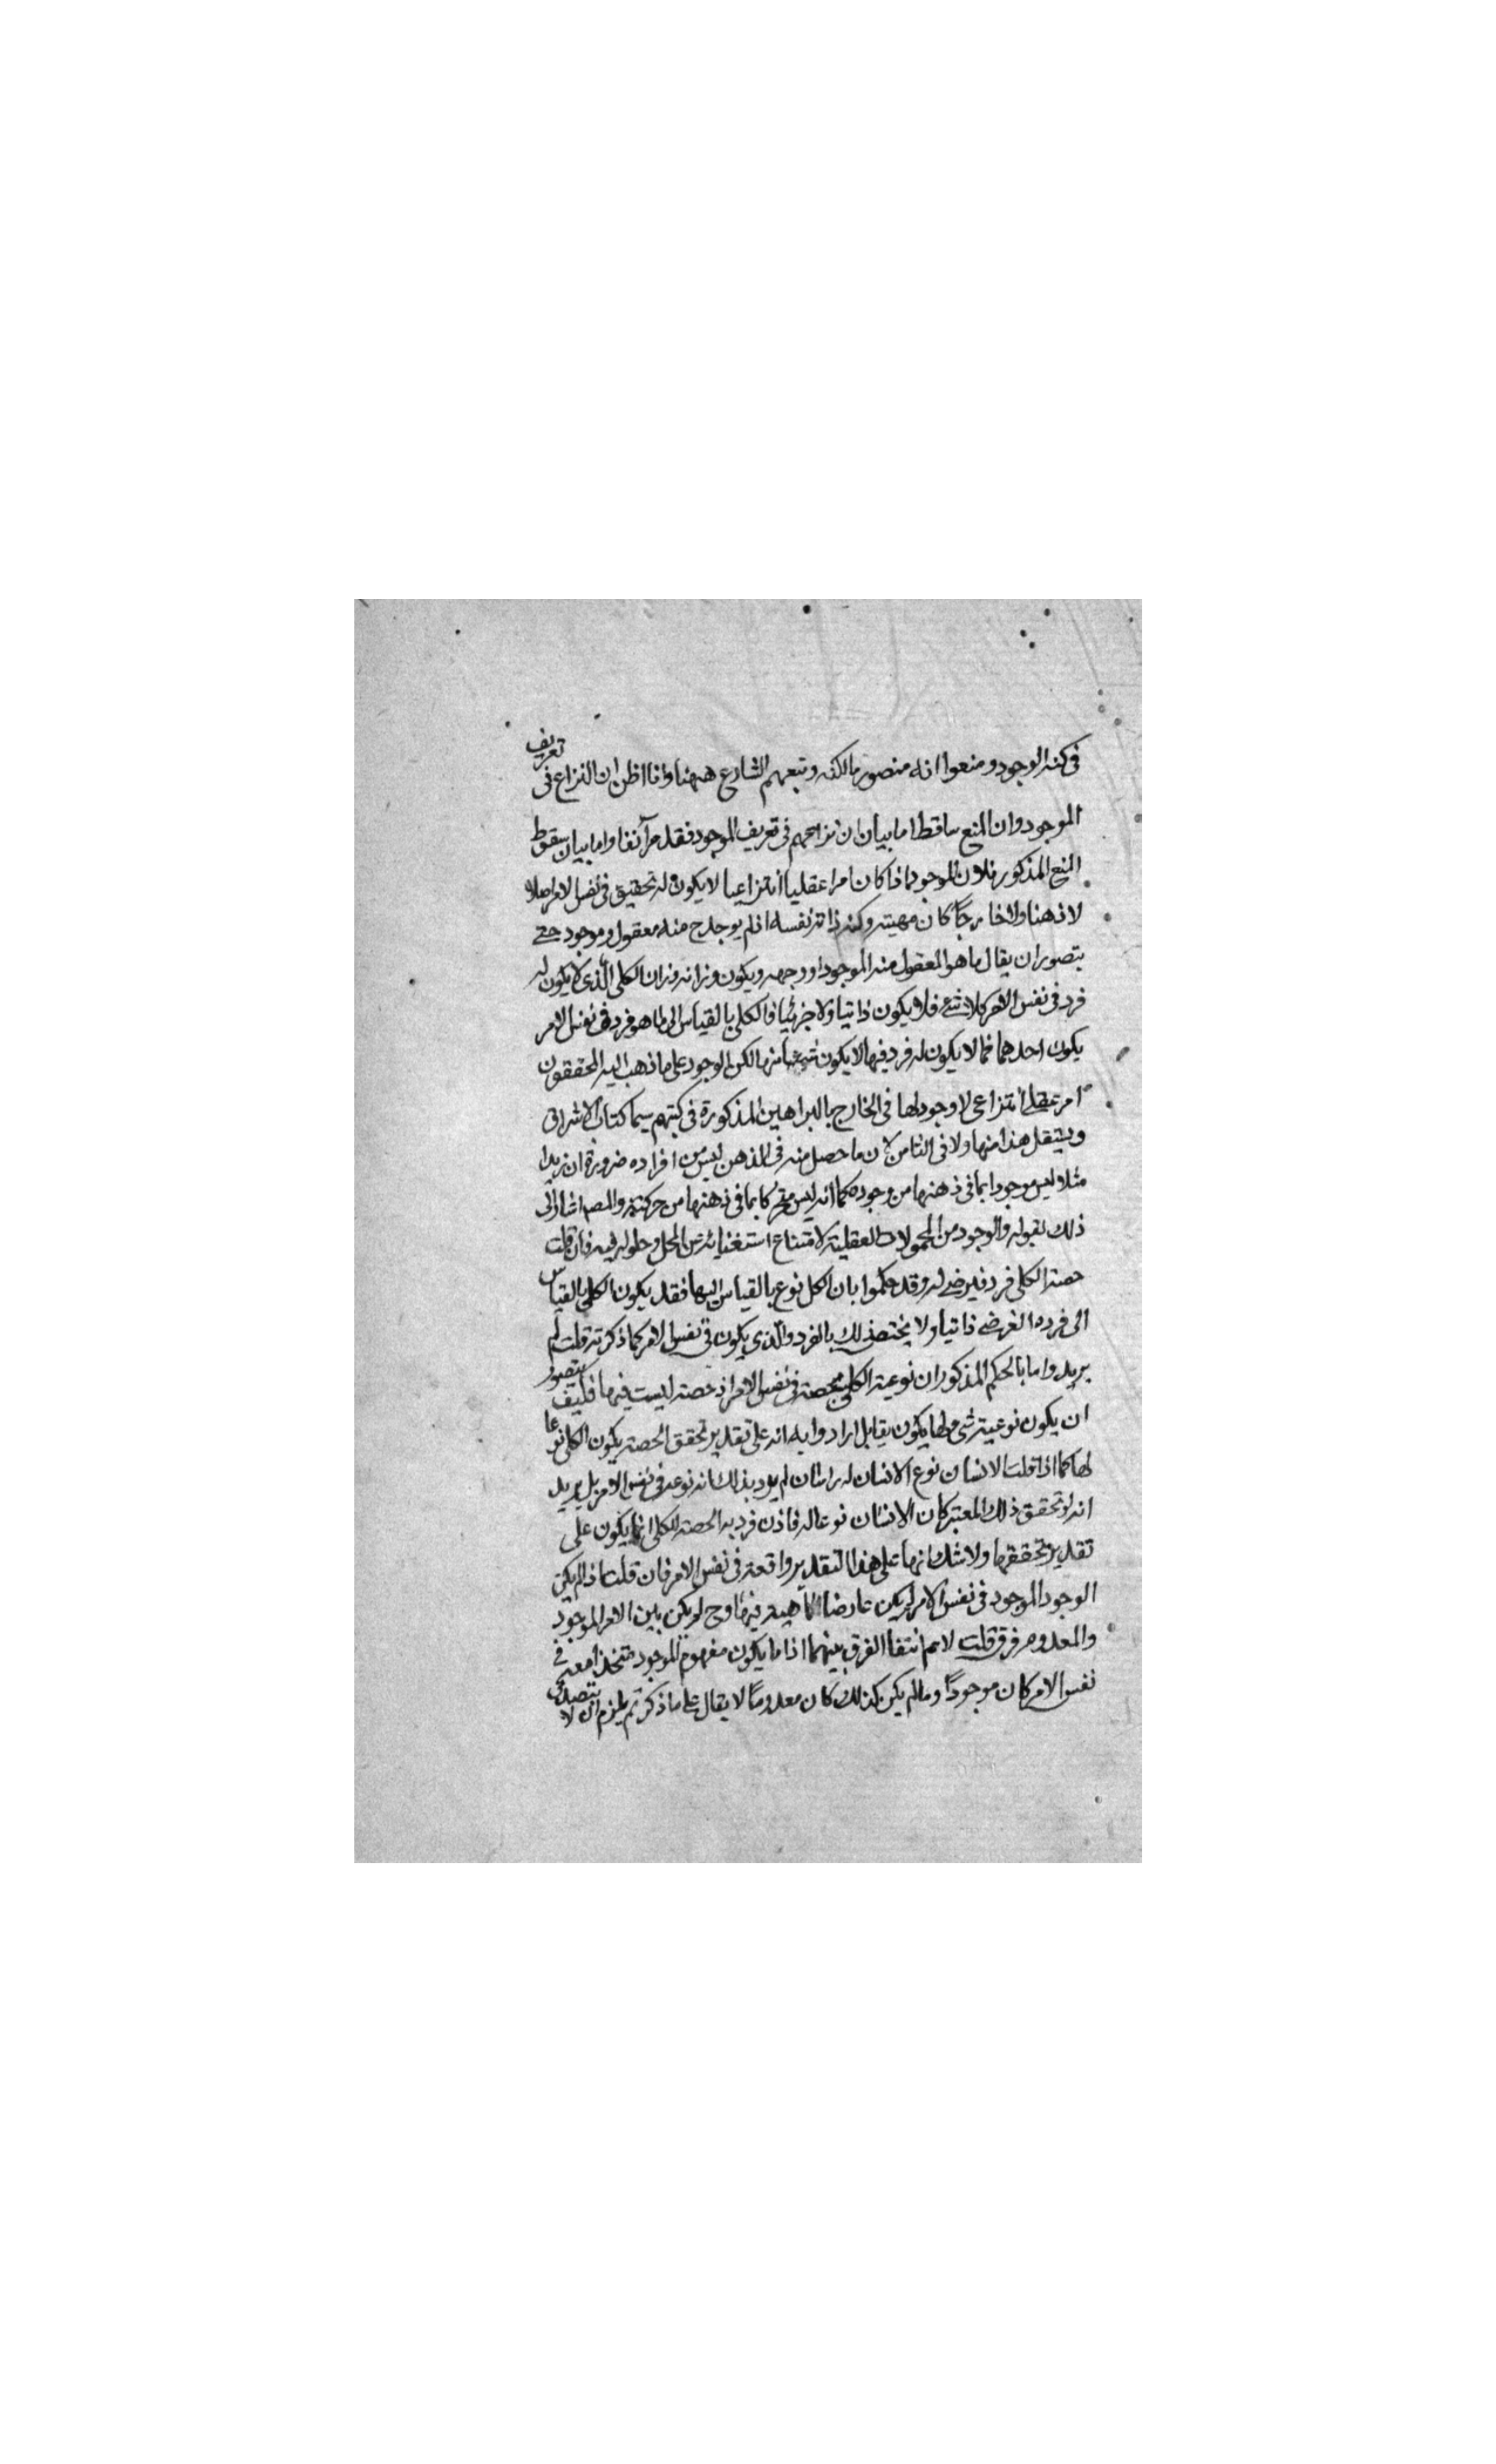 فى كنه الوجود ومنعوا انه متصور بالكنه وتبعهم الشارح ههنا وانا اظن ان النزاع فى تعريف
الموجود وان المنع ساقط اما بيان ان نزاعهم فى تعريف الموجود فقد مر آنفا واما بيان سقوط
المنع المذكور فلان الموجود اذا كان امرا عقليا انتزاعيا لا يكون له تحقيق فى نفس الامر اصلا
لا ذهنا ولا خارجاً كان مهيته وكنه ذاته نفسه اذ لم يوجد ح منه معقول وموجود حتى
يتصور ان يقال ما هو المعقول منه الموجود او وجهه ويكون وزانه وزان الكلى الذى لا يكون له
فرد فى نفس الامر كلا شئ فلا يكون ذاتيا ولا جزئيا فالكلى بالقياس الى ما هو فرده فى نفس الامر
يكون احدهما فما لا يكون له فرد فيها لا يكون شيئا منها لكن الوجود على ما ذهب اليه المحققون
امر عقلى انتزاعى لا وجود لها فى الخارج بالبراهين المذكورة فى كتبهم سيما كتاب الاشراق
هذا منها ولا فى لان ما حصل منه فى الذهن ليس من افراده ضرورة ان زيدا
مثلا ليس موجودا بما فى ذهنها من وجوده كما انه ليس متحركا بما فى ذهنها من حركته والمص اشار الى
ذلك بقوله والوجود من المحمولات العقلية لامتناع استغنائه عن المحل وحلوله فيه فان قلت
حصة الكلى فرد له وقد حكموا بان الكل نوع بالقياس اليها فقد يكون الكلى بالقياس
الى فرده ذاتيا ولا يختص ذلك بالفرد والذى يكون فى نفس الامر كما ذكرته قلت لم
يريدوا بالحكم المذكور ان نوعية الكلى لحصته فى نفس الامر اذ حصته ليست فيها فكيف يتصور
ان يكون نوعية شى لها يكون بل ارادوا به انه على تقدير تحقق الحصة يكون الكلى نوعا
لها كما اذا قلت الانسان نوع لم يرد بذلك انه نوعه فى نفس الامر بل يريد
انه لو تحقق ذلك المعتبر كان الانسان نوعا له فاذن فردية الحصة للكلى انما يكون على
تقدير تحققها ولا شك انها على هذا التقدير واقعة فى نفس الامر فان قلت اذا لم يكن
الوجود الموجود فى نفس الامر لم يكن عارضا لماهية فيها وح لم يكن بين الامر الموجود
والمعدوم فرق قلت لا نم انتفا الفرق بينهما اذ ما يكون مفهوم الموجود متحدا معه فى
نفس الامر كان موجوداً وما لم يكن كذلك كان معدوماً لا يقال على ما ذكرتم يلزم ان لا يتصف